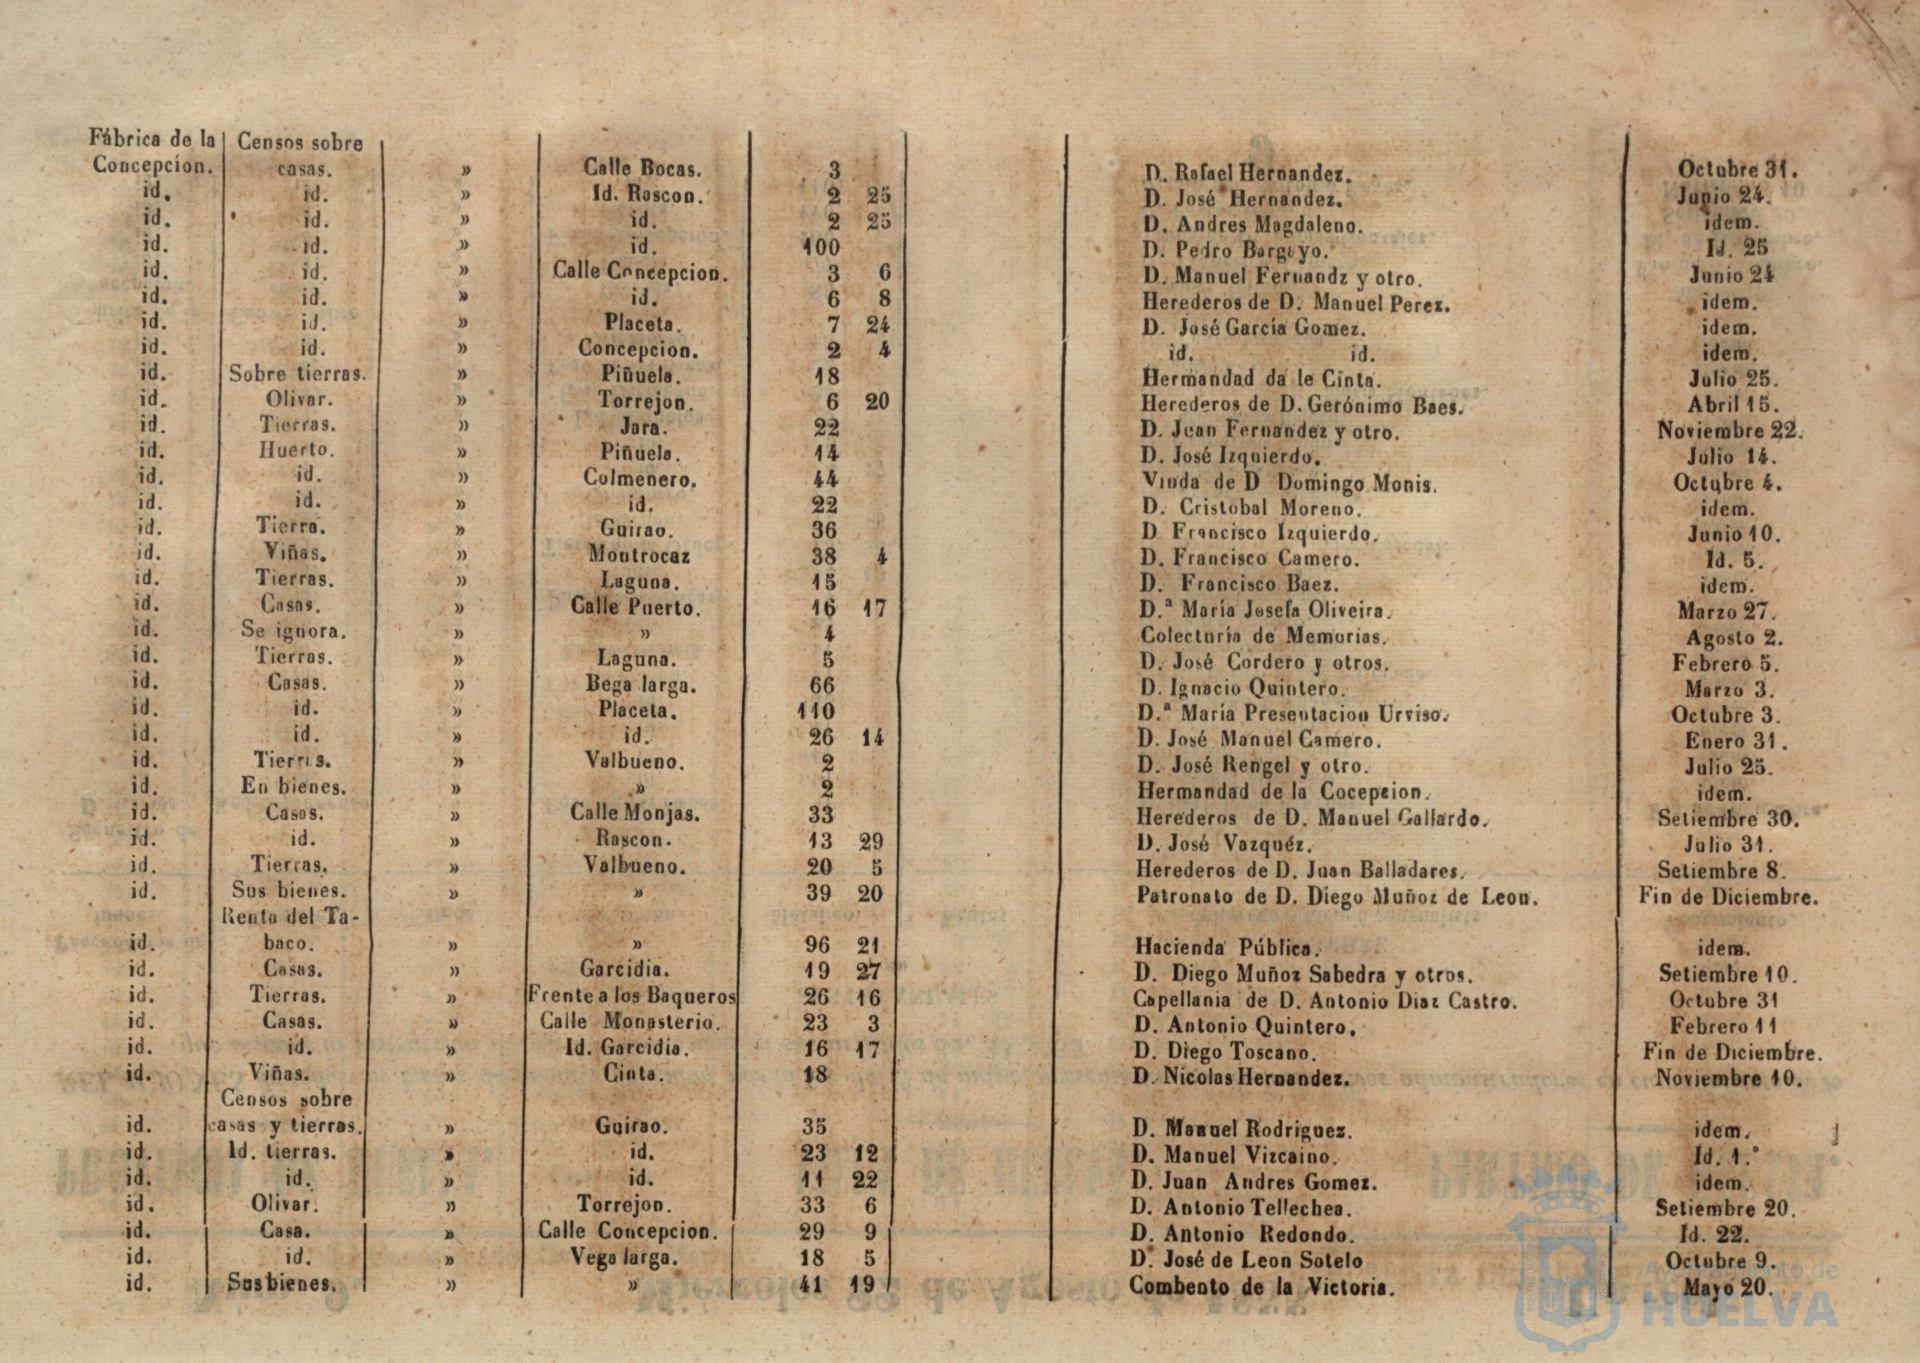 Fábrica de la Censos sobre
Concepcion. casas. » Calle Bocas. 3 D. Rafael Hernandez. Octubre 31.
id. id. » Id. Rascon. 2 25 D. José Hernandez. Junio 24.
id. id. » id. 2 25 D. Andres Magdaleno. idem.
id. id. » id. 100 D. Pedro Bargayo. Id. 25
id. id. » Calle Concepcion. 3 6 D. Manuel Fernandz y otro. Junio 24
id. id. » id. 6 8 Herederos de D. Manuel Perez. idem.
id. id. » Placeta. 7 24 D. José García Gomez. idem.
id. id. » Concepcion. 2 4 id. id. idem.
id. Sobre tierras. » Piñuela. 18 Hermandad da le Cinta. Julio 25.
id. Olivar. » Torrejon. 6 20 Herederos de D. Gerónimo Baes. Abril 15.
id. Tierras. » Jara. 22 D. Juan Fernandez y otro. Noviembre 22.
id. Huerto. » Piñuela. 14 D. José Izquierdo. Julio 14.
id. id. » Colmenero. 44 Viuda de D Domingo Monis. Octubre 4.
id. id. » id. 22 D. Cristobal Moreno. idem.
id. Tierra. » Guirao. 36 D Francisco Izquierdo. Junio 10.
id. Viñas. » Montrocaz 38 4 D. Francisco Camero. Id. 5.
id. Tierras. » Laguna. 15 D. Francisco Baez. idem.
id. Casas. » Calle Puerto. 16 17 D.ª María Josefa Oliveira. Marzo 27.
id. Se ignora. » » 4 Colecturía de Memorias. Agosto 2.
id. Tierras. » Laguna. 5 D. José Cordero y otros. Febrero 5.
id. Casas. » Bega larga. 66 D. Ignacio Quintero. Marzo 3.
id. id. » Placeta. 110 D.ª María Presentacion Urviso. Octubre 3.
id. id. » id. 26 14 D. José Manuel Camero. Enero 31.
id. Tierras. » Valbueno. 2 D. José Rengel y otro. Julio 25.
id. En bienes. » » 2 Hermandad de la Cocepcion. idem.
id. Casas. » Calle Monjas. 33 Herederos de D. Manuel Gallardo. Setiembre 30.
id. id. » Rascon. 13 29 D. José Vazquéz. Julio 31.
id. Tierras. » Valbueno. 20 5 Herederos de D. Juan Balladares. Setiembre 8.
id. Sus bienes. » » 39 20 Patronato de D. Diego Muñoz de Leon. Fin de Diciembre.
Renta del Ta-
id. baco. » » 96 21 Hacienda Pública. idem.
id. Casas. » Garcidia. 19 27 D. Diego Muñoz Sabedra y otros. Setiembre 10.
id. Tierras. » Frente a los Baqueros 26 16 Capellania de D. Antonio Diaz Castro. Octubre 31
id. Casas. » Calle Monasterio. 23 3 D. Antonio Quintero. Febrero 11
id. id. » Id. Garcidia. 16 17 D. Diego Toscano. Fin de Diciembre.
id. Viñas. » Cinta. 18 D. Nicolas Hernandez. Noviembre 10.
Censos sobre
id. casas y tierras. » Guirao. 35 D. Manuel Rodriguez. idem.
id. Id. tierras. » id. 23 12 D. Manuel Vizcaino. Id. 1.º
id. id. » id. 11 22 D. Juan Andres Gomez. idem.
id. Olivar. » Torrejon. 33 6 D. Antonio Tellechea. Setiembre 20.
id. Casa. » Calle Concepcion. 29 9 D. Antonio Redondo. Id. 22.
id. id. » Vega larga. 18 5 D. José de Leon Sotelo Octubre 9.
id. Sus bienes. » » 41 19 Combento de la Victoria. Mayo 20.
Ayuntamiento de
HUELVA